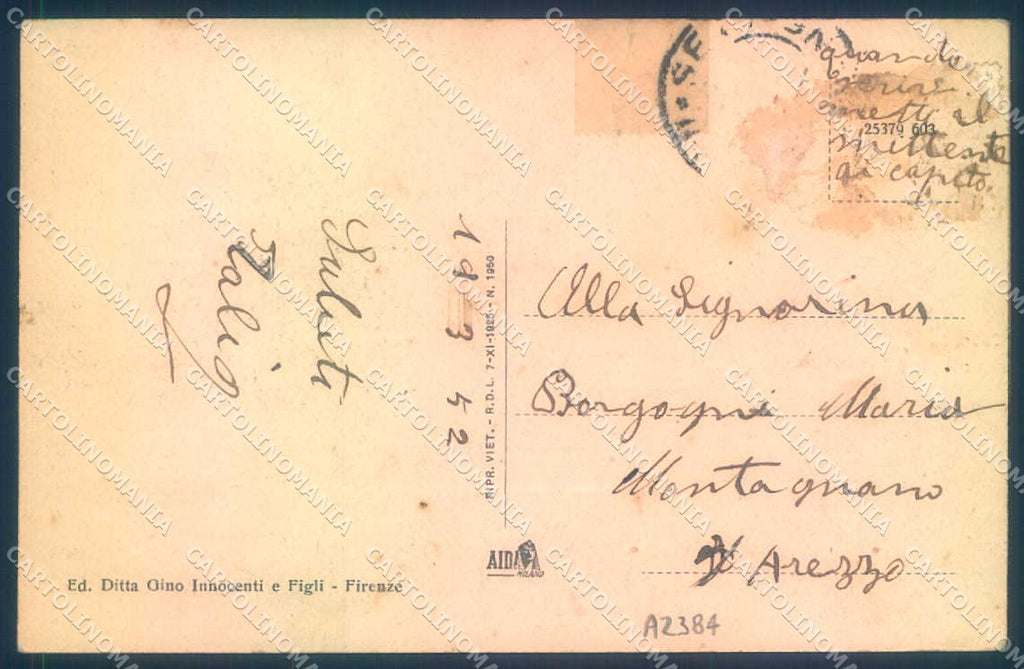 quando
scrivi
metti il
25379 603
mittente
da capito.
Saluti
Italio
19 3 52
RIPR. VIET. - R.D.L. 7-XI-1925 - N. 1950
Alla Signorina
Borgogni Maria
Montagnano
Arezzo
AIDA
MILANO
Ed. Ditta Gino Innocenti e Figli - Firenze
A2384
CARTOLINOMANIA